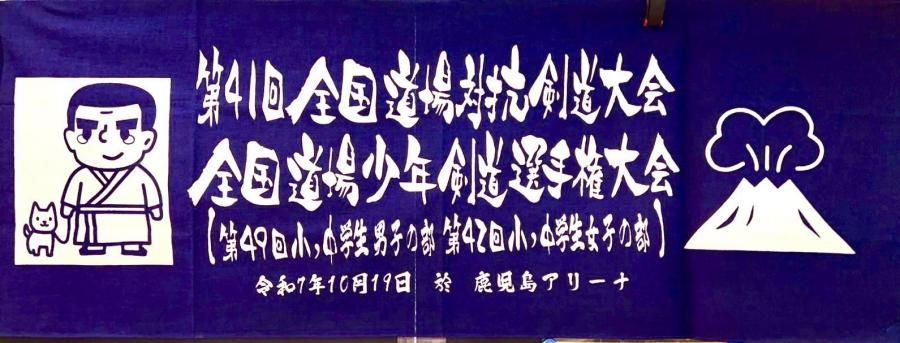 第41回全国道場対抗剣道大会
全国道場少年剣道選手権大会
[第49回小,中学生男子の部 第42回小,中学生女子の部]
令和7年10月19日 於 鹿児島アリーナ